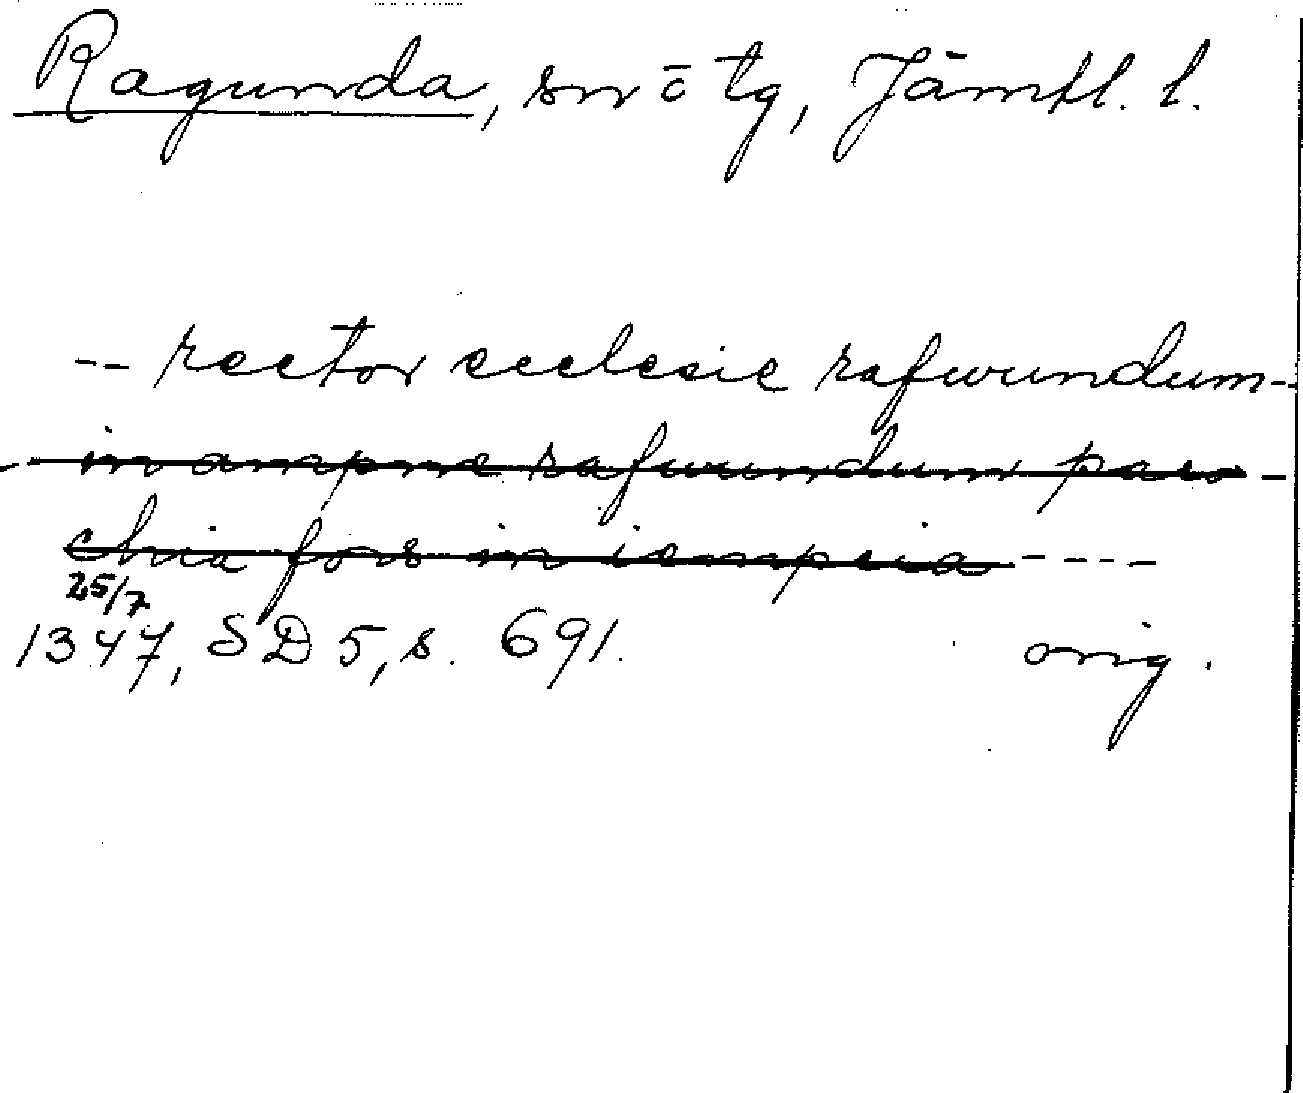 Ragunda, sn o tg, Jämtl. l.
-- rector ecclesie rafwundum--
in ampne rafwundum paro-
chia fors in iempcia ----
25/7
1347, SD 5, s. 691. orig.